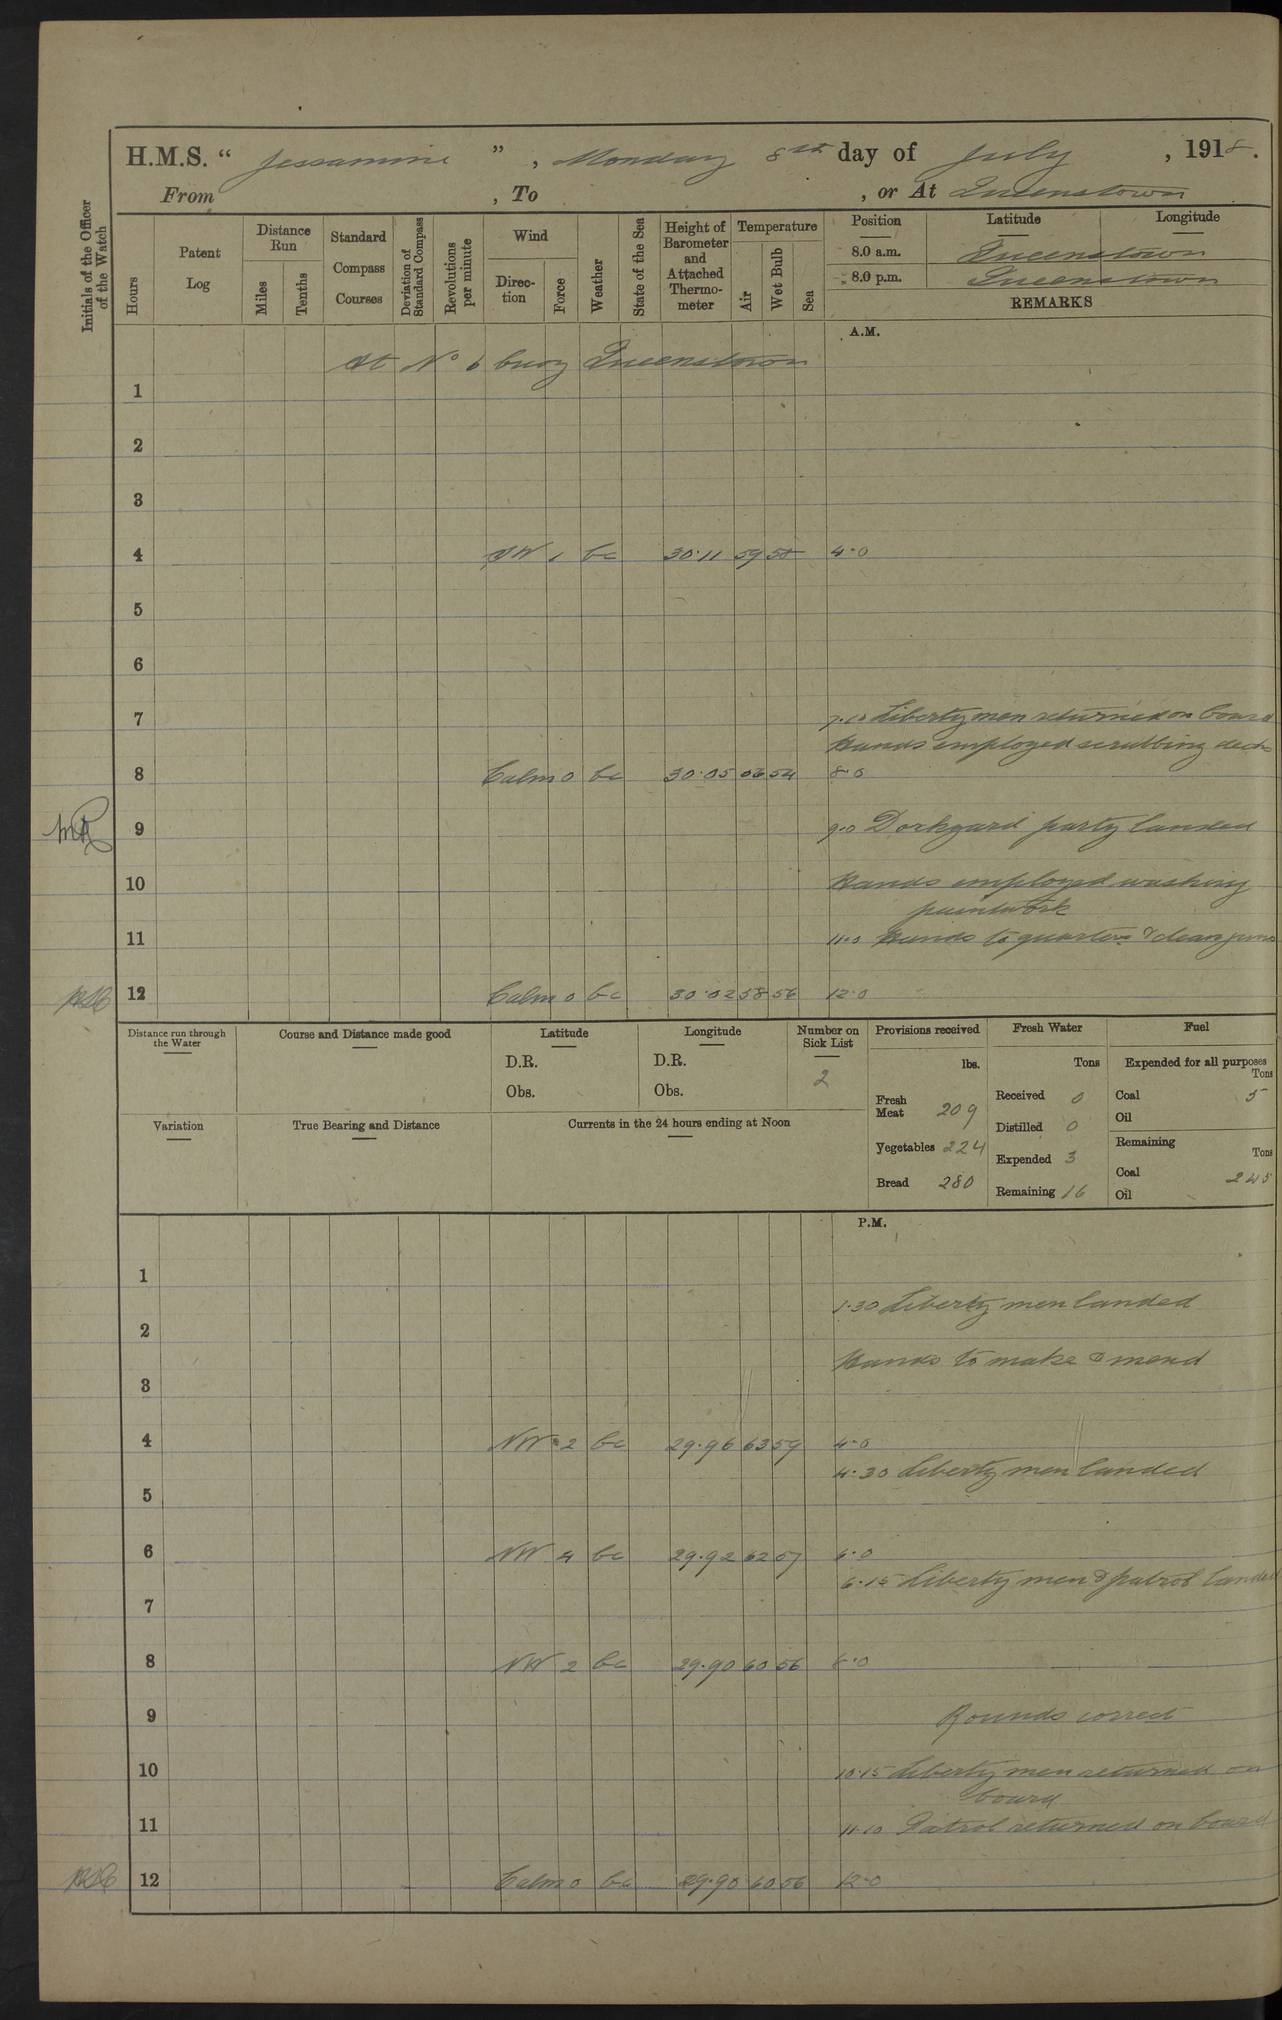 H.M.S. “ Jessamine ” , Monday 8th day of July , 1918.
From , To , or At Queenstown
Initials of the Officer of the Watch
Hours
Patent Log
Distance Run
Miles
Tenths
Standard Compass Courses
Deviation of Standard Compass
Revolutions per minute
Wind
Direction
Force
Weather
State of the Sea
Height of Barometer and Attached Thermometer
Temperature
Air
Wet Bulb
Sea
Position Latitude Longitude
8.0 a.m. Queenstown
8.0 p.m. Queenstown
REMARKS
A.M.
At No 6 buoy Queenstown
1
2
3
4 SW 1 bc 30.11 59 58 4.0
5
6
7 7.10 Liberty men returned on board
Hands employed scrubbing decks
8 Calm 0 bc 30.05 54 8.0
9 9.0 Dockyard party landed
10 Hands employed washing
paintwork
11 11.0 Hands to quarters & clean guns
12 Calm 0 bc 30.02 58 56 12.0
Distance run through the Water
Course and Distance made good
Latitude
D.R.
Obs.
Longitude
D.R.
Obs.
Number on Sick List
2
Provisions received
lbs.
Fresh Meat 209
Vegetables 224
Bread 280
Fresh Water
Tons
Received 0
Distilled 0
Expended 3
Remaining 16
Fuel
Expended for all purposes
Tons
Coal 5
Oil
Remaining
Tons
Coal 245
Oil
Variation
True Bearing and Distance
Currents in the 24 hours ending at Noon
P.M.
1
1.30 Liberty men landed
2
Hands to make & mend
3
4 NW 2 bc 29.96 63 59 4.0
4.30 Liberty men landed
5
6 NW 4 bc 29.92 62 57 6.0
6.15 Liberty men & patrol landed
7
8 NW 2 bc 29.90 60 56 8.0
9 Rounds correct
10 10.15 Liberty men returned on
board
11 11.10 Patrol returned on board
12 Calm 0 bc 29.90 60 56 12.0